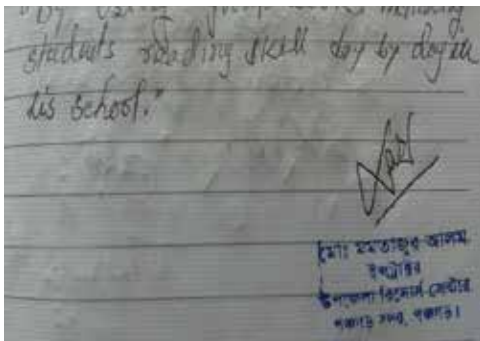 "By using
students reading skill day by day in
his school."
মোঃ মমতাজুল আলম
ইন্সট্রাক্টর
উপজেলা রিসোর্স সেন্টার
পঞ্চগড় সদর, পঞ্চগড়।